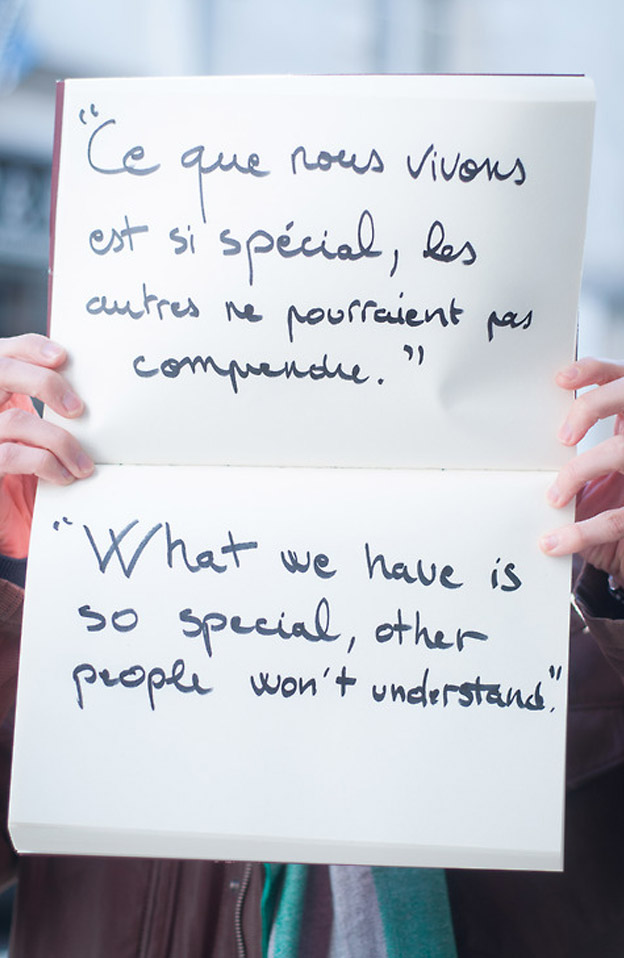 "Ce que nous vivons
est si spécial, les
autres ne pourraient pas
comprendre."
"What we have is
so special, other
people won't understand."